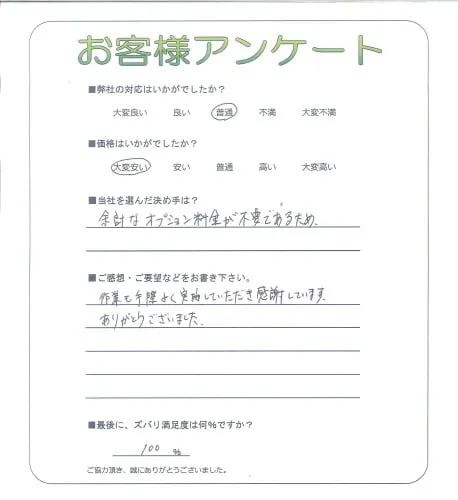 お客様アンケート
■弊社の対応はいかがでしたか?
大変良い 良い 普通 不満 大変不満
■価格はいかがでしたか?
大変安い 安い 普通 高い 大変高い
■当社を選んだ決め手は?
余計なオプション料金が不要であるため、
■ご感想・ご要望などをお書き下さい。
作業も手際よく実施していただき感謝しています。
ありがとうございました。
■最後に、ズバリ満足度は何%ですか?
100 %
ご協力頂き、誠にありがとうございました。